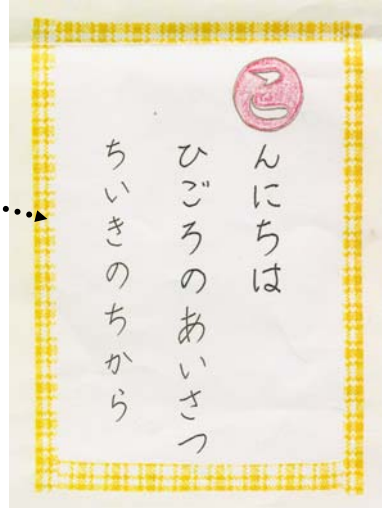 こんにちは
ひごろのあいさつ
ちいきのちから